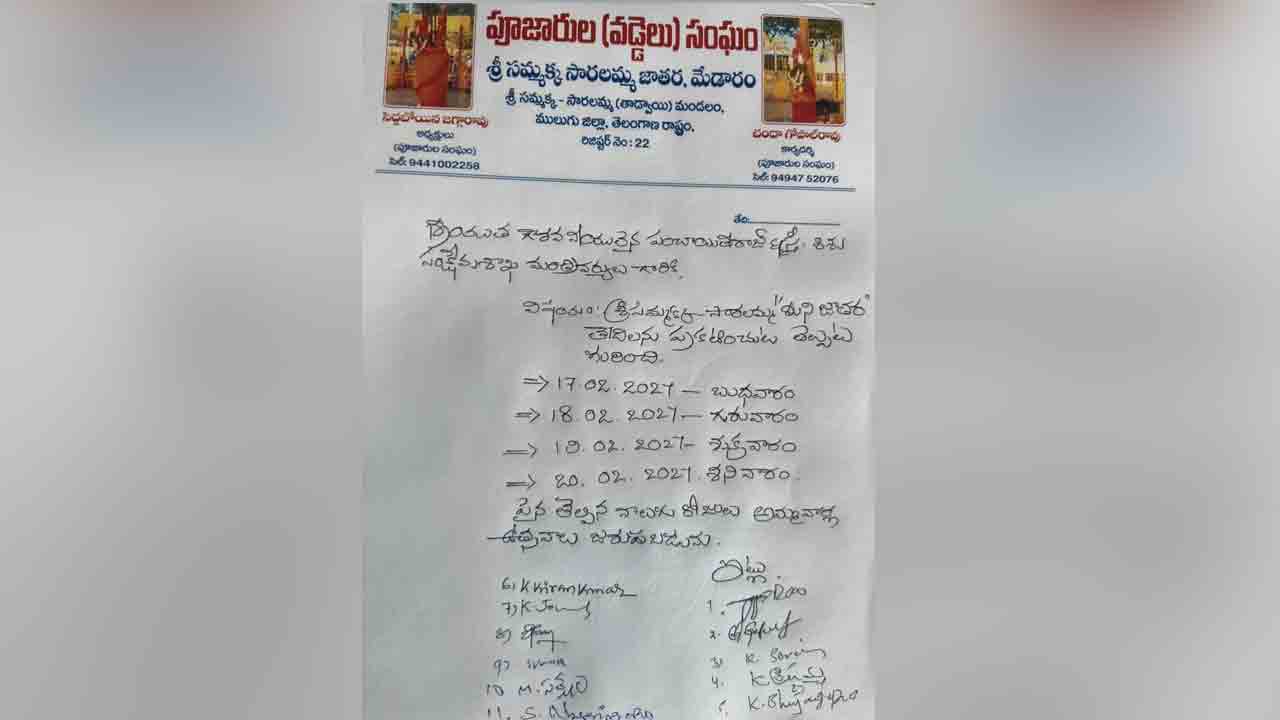 పూజారుల (వడ్డెలు) సంఘం
శ్రీ సమ్మక్క సారలమ్మ జాతర, మేడారం
శ్రీ సమ్మక్క - సారలమ్మ (తాడ్వాయి) మండలం,
ములుగు జిల్లా, తెలంగాణ రాష్ట్రం,
రిజిష్టర్ నెం : 22
సిద్దబోయిన జగ్గారావు
అధ్యక్షులు
(పూజారుల సంఘం)
సెల్: 9441002258
చందా గోపాల్‌రావు
కార్యదర్శి
(పూజారుల సంఘం)
సెల్: 94947 52076
తేది:
శ్రీయుత గౌరవనీయులైన పంచాయితీరాజ్ & స్త్రీ, శిశు
సంక్షేమశాఖ మంత్రివర్యులు గారికి,
విషయం: శ్రీ సమ్మక్క - సారలమ్మ "మిని జాతర"
తేదీలను ప్రకటించుట తెల్పుట
గురించి.
=> 17.02.2027 - బుధవారం
=> 18.02.2027 - గురువారం
=> 19.02.2027 - శుక్రవారం
=> 20.02.2027. శనివారం.
పైన తెల్పిన నాలుగు రోజులు అమ్మవార్ల
ఉత్సవాలు జరుపబడును.
ఇట్లు.
6) K Kiran Kumar
7) K.
8)
9)
10 M.
11. S.
1. Rao
2.
3) K.
4. K
5. K. Bhujanga Rao